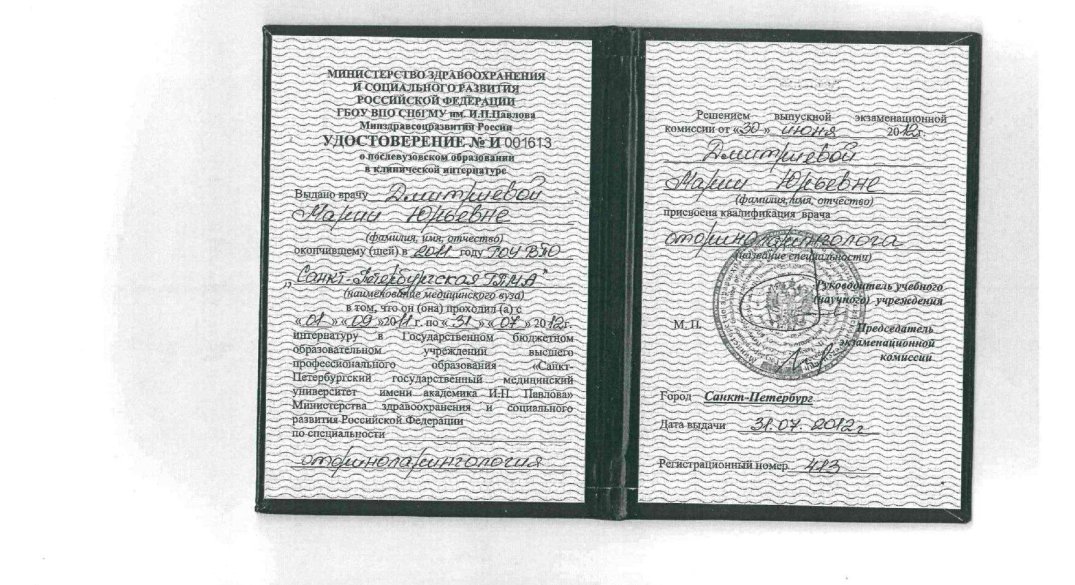 МИНИСТЕРСТВО ЗДРАВООХРАНЕНИЯ
И СОЦИАЛЬНОГО РАЗВИТИЯ
РОССИЙСКОЙ ФЕДЕРАЦИИ
ГБОУ ВПО СПбГМУ им. И.П.Павлова
Минздравсоцразвития России
УДОСТОВЕРЕНИЕ № И 001613
о послевузовском образовании
в клинической интернатуре
Выдано врачу Дмитриевой
Марии Юрьевне
(фамилия, имя, отчество)
окончившему (шей) в 2011 году ГОУ ВПО
„Санкт-Петербургская ГПМА"
(наименование медицинского вуза)
в том, что он (она) проходил (а) с
«01» «09» 2011 г. по «31» «07» 2012г.
интернатуру в Государственном бюджетном
образовательном учреждении высшего
профессионального образования «Санкт-
Петербургский государственный медицинский
университет имени академика И.П. Павлова»
Министерства здравоохранения и социального
развития Российской Федерации
по специальности
оториноларингология
Решением выпускной экзаменационной
комиссии от «30» июня 2012г.
Дмитриевой
Марии Юрьевне
(фамилия, имя, отчество)
присвоена квалификация врача
оториноларинголога
(название специальности)
Руководитель учебного
(научного) учреждения
М. П.
Председатель
экзаменационной
комиссии
Город Санкт-Петербург
Дата выдачи 31.07.2012г
Регистрационный номер 413